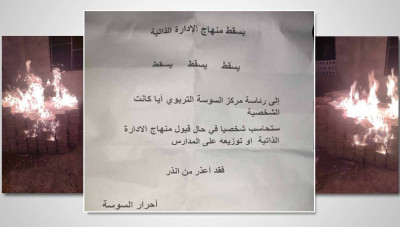 يسقط منهاج الإدارة الذاتية
يسقط يسقط يسقط
إلى رئاسة مركز السوسة التربوي أيا كانت
الشخصية
ستحاسب شخصيا في حال قبول منهاج الادارة
الذاتية او توزيعه على المدارس
فقد أعذر من انذر
أحرار السوسة